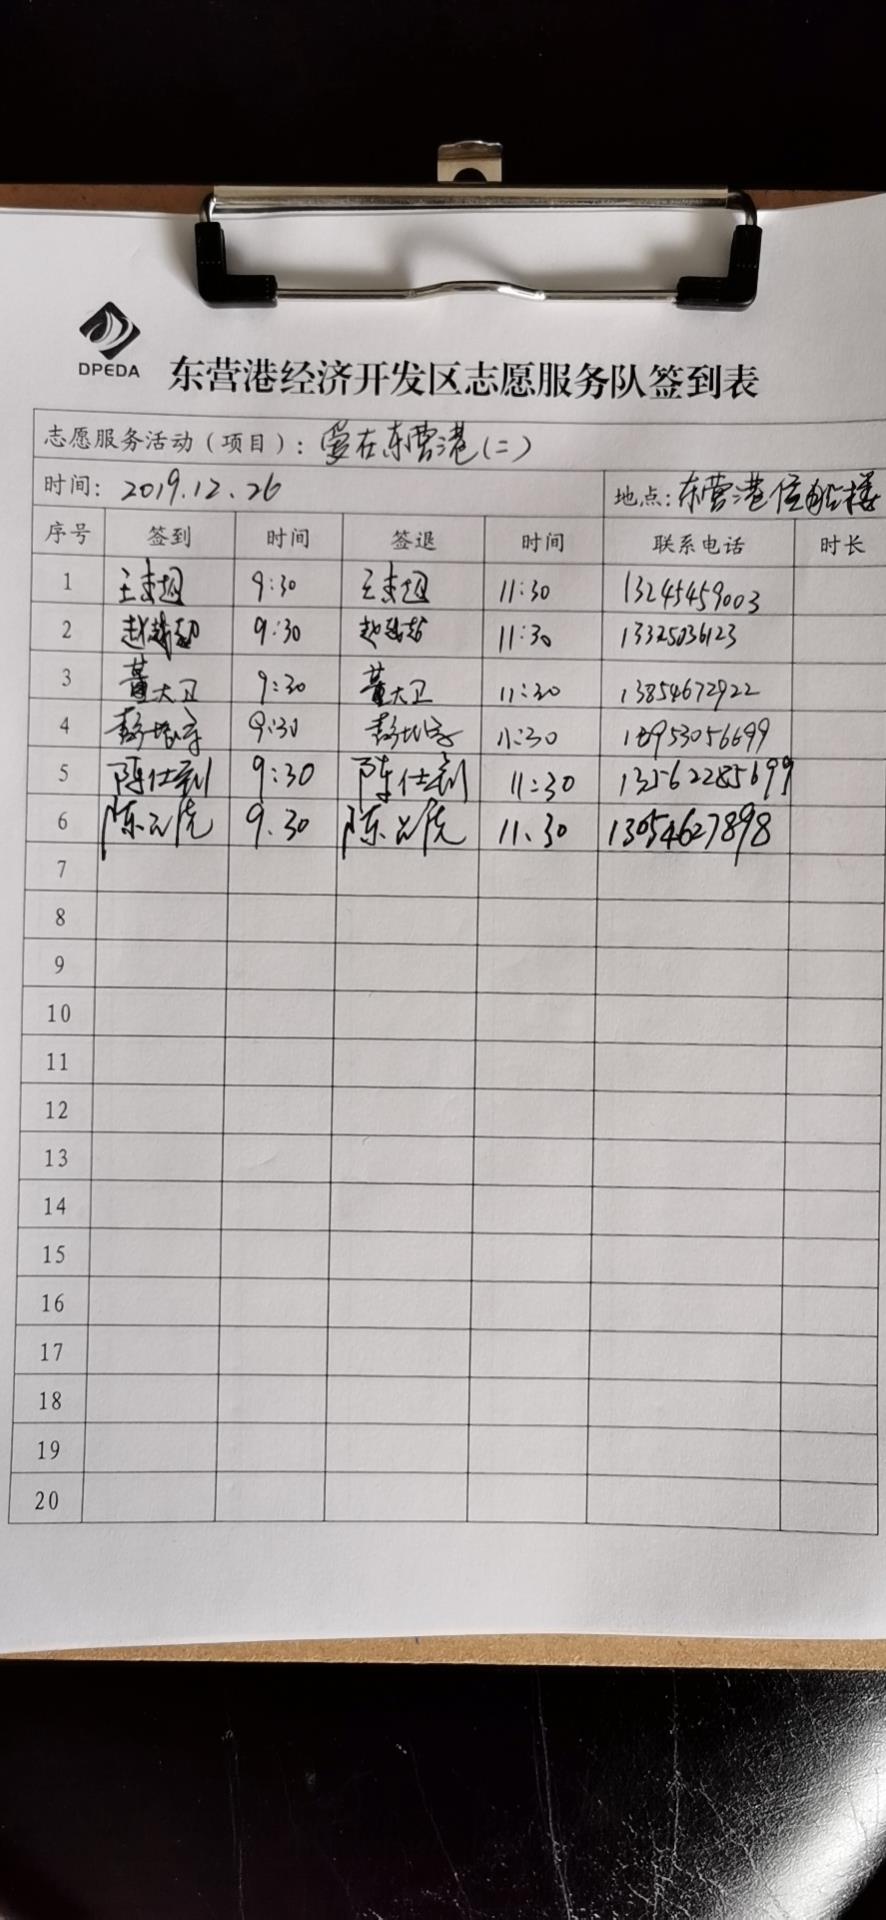 DPEDA
东营港经济开发区志愿服务队签到表
志愿服务活动（项目）：爱在东营港(二)
时间：2019.12.26 地点：东营港 楼
序号 签到 时间 签退 时间 联系电话 时长
1 王 超 9:30 王 超 11:30 13245459003
2 赵 9:30 赵 11:30 13325036123
3 董大卫 9:30 董大卫 11:30 13854672922
4 彭 9:30 彭 11:30 18953056699
5 陈仕 9:30 陈仕 11:30 13562285699
6 陈 虎 9.30 陈 虎 11.30 13054627898
7
8
9
10
11
12
13
14
15
16
17
18
19
20